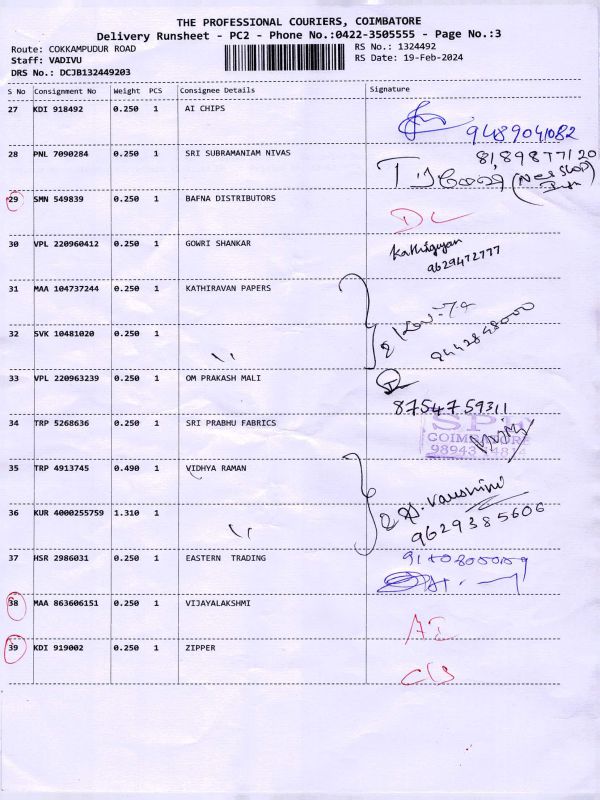 THE PROFESSIONAL COURIERS, COIMBATORE
Delivery Runsheet - PC2 - Phone No.:0422-3505555 - Page No.:3
Route: COKKAMPUDUR ROAD
RS No.: 1324492
Staff: VADIVU
RS Date: 19-Feb-2024
DRS No.: DCJB132449203
S No Consignment No Weight PCS Consignee Details Signature
27 KDI 918492 0.250 1 AI CHIPS
9489041082
28 PNL 7090284 0.250 1 SRI SUBRAMANIAM NIVAS
29 SMN 549839 0.250 1 BAFNA DISTRIBUTORS
DL
30 VPL 220960412 0.250 1 GOWRI SHANKAR
9629472777
31 MAA 104737244 0.250 1 KATHIRAVAN PAPERS
32 SVK 10481020 0.250 1
9442848000
33 VPL 220963239 0.250 1 OM PRAKASH MALI
8754759311
34 TRP 5268636 0.250 1 SRI PRABHU FABRICS
35 TRP 4913745 0.490 1 VIDHYA RAMAN
36 KUR 4000255759 1.310 1
9629385606
37 HSR 2986031 0.250 1 EASTERN TRADING
38 MAA 863606151 0.250 1 VIJAYALAKSHMI
39 KDI 919002 0.250 1 ZIPPER